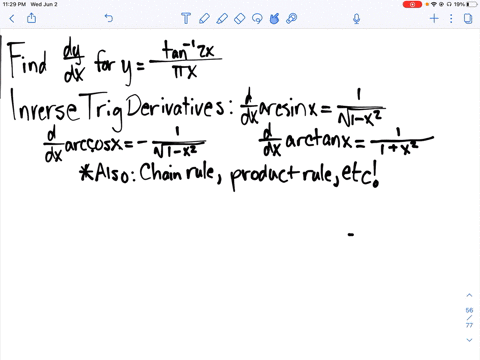 11:29 PM Wed Jun 2
19%
Find dy/dx for y = tan⁻¹2x/πx
Inverse Trig Derivatives: d/dx arcsinx = 1/√1-x²
d/dx arccosx = - 1/√1-x² d/dx arctanx = 1/1+x²
*Also: Chain rule, product rule, etc!
56
/
77